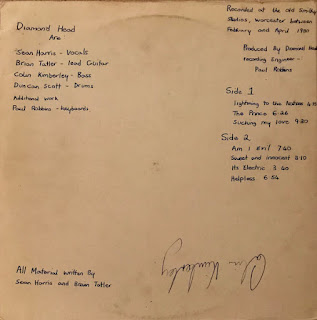 Diamond Head
Are
Sean Harris - Vocals
Brian Tatler - lead Guitar
Colin Kimberley - Bass
Duncan Scott - Drums
Additional work
Paul Robbins - keyboards.
All Material written By
Sean Harris and Brian Tatler
Recorded at the old Smithy
Studios, Worcester between
February and April 1980
Produced By Diamond Head
recording Engineer -
Paul Robbins
Side 1
Lightning to the Nations
The Prince 6:26
Sucking my love 9:30
Side 2
Am I Evil 7:40
Sweet and innocent 3:10
Its Electric 3:40
Helpless 6:54
Colin Kimberley